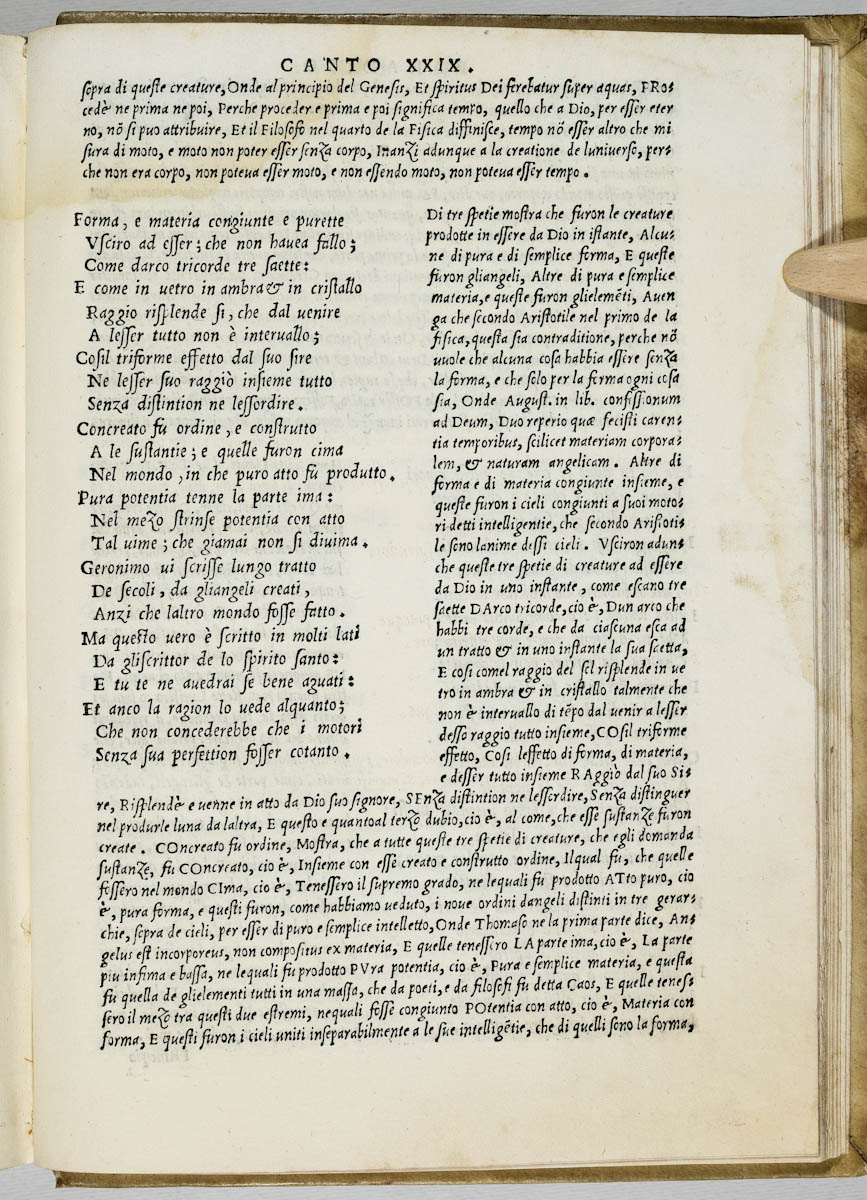 CANTO XXIX.
sopra di queste creature, Onde al principio del Genesis, Et spiritus Dei ferebatur super aquas, PRo⸗
cedè ne prima ne poi, Perche proceder e prima e poi significa tempo, quello che a Dio, per esser eter
no, nō si puo attribuire, Et il Filosofo nel quarto de la Fisica diffinisce, tempo nō esser altro che mi
sura di moto, e moto non poter esser senza corpo, Inanzi adunque a la creatione de luniverso, per⸗
che non era corpo, non poteva esser moto, e non essendo moto, non poteva esser tempo.
Forma, e materia congiunte e purette
Vsciro ad esser; che non hauea fallo;
Come darco tricorde tre saette:
E come in uetro in ambra & in cristallo
Raggio risplende si, che dal uenire
A lesser tutto non è interuallo;
Cosil triforme effetto dal suo sire
Ne lesser suo raggiò insieme tutto
Senza distintion ne lessordire.
Concreato fù ordine, e construtto
A le sustantie; e quelle furon cima
Nel mondo, in che puro atto fù produtto.
Pura potentia tenne la parte ima:
Nel mezo strinse potentia con atto
Tal uime; che giamai non si diuima.
Geronimo ui scrisse lungo tratto
De secoli, da gliangeli creati,
Anzi che laltro mondo fosse fatto.
Ma questo uero è scritto in molti lati
Da gliscrittor de lo spirito santo:
E tu te ne auedrai se bene aguati:
Et anco la ragion lo uede alquanto;
Che non concederebbe che i motori
Senza sua perfettion fosser cotanto.
Di tre spetie mostra che furon le creature
prodotte in essere da Dio in istante, Alcu⸗
ne di pura e di semplice forma, E queste
furon gliangeli, Altre di pura e semplice
materia, e queste furon glielemēti, Auen
ga che secondo Aristotile nel primo de la
fisica, questa sia contraditione, perche nō
vuole che alcuna cosa habbia essere senza
la forma, e che solo per la forma ogni cosa
sia, Onde August. in lib. confissionum
ad Deum, Duo reperio quæ fecisti caren⸗
tia temporibus, scilicet materiam corpora⸗
lem, & naturam angelicam. Altre di
forma e di materia congiunte insieme, e
queste furon i cieli congiunti a suoi moto⸗
ri detti intelligentie, che secondo Aristoti⸗
le sono lanime dessi cieli. Vsciron adun⸗
che queste tre spetie di creature ad essere
da Dio in uno instante, come escano tre
saette DArco tricorde, cio è, Dun arco che
habbi tre corde, e che da ciascuna esca ad
un tratto & in uno instante la sua scetta,
E cosi comel raggio del sol risplende in ue
tro in ambra & in cristallo talmente che
non è interuallo di tēpo dal venir a lesser
desso raggio tutto insieme, COsil triforme
effetto, Cosi leffetto di forma, di materia,
e desser tutto insieme RAggiò dal suo Si⸗
re, Risplendè e uenne in atto da Dio suo signore, SEnza distintion ne lessordire, Senza distinguer
nel produrle luna da laltra, E questo e quantoal terzo dubio, cio è, al come, che esse sustanze furon
create. COncreato fù ordine, Mostra, che a tutte queste tre spetie di creature, che egli domanda
sustanze, fù COncreato, cio è, Insieme con esse creato e construtto ordine, Ilqual fù, che quelle
fossero nel mondo CIma, cio è, Tenessero il supremo grado, ne lequali fù prodotto ATto puro, cio
è, pura forma, e questi furon, come habbiamo ueduto, i noue ordini dangeli distinti in tre gerar⸗
chie, sopra de cieli, per esser di puro e semplice intelletto, Onde Thomaso ne la prima parte dice, An⸗
gelus est incorporeus, non compositus ex materia, E quelle tenessero LA parte ima, cio è, La parte
piu infima e bassa, ne lequali fù prodotto PVra potentia, cio è, Pura e semplice materia, e questa
fù quella de glielementi tutti in una massa, che da poeti, e da filosofi fù detta Caos, E quelle tenes⸗
sero il mezo tra questi due estremi, nequali fosse congiunto POtentia con atto, cio è, Materia con
forma, E questi furon i cieli uniti inseparabilmente a le sue intelligētie, che di quelli sono la forma,